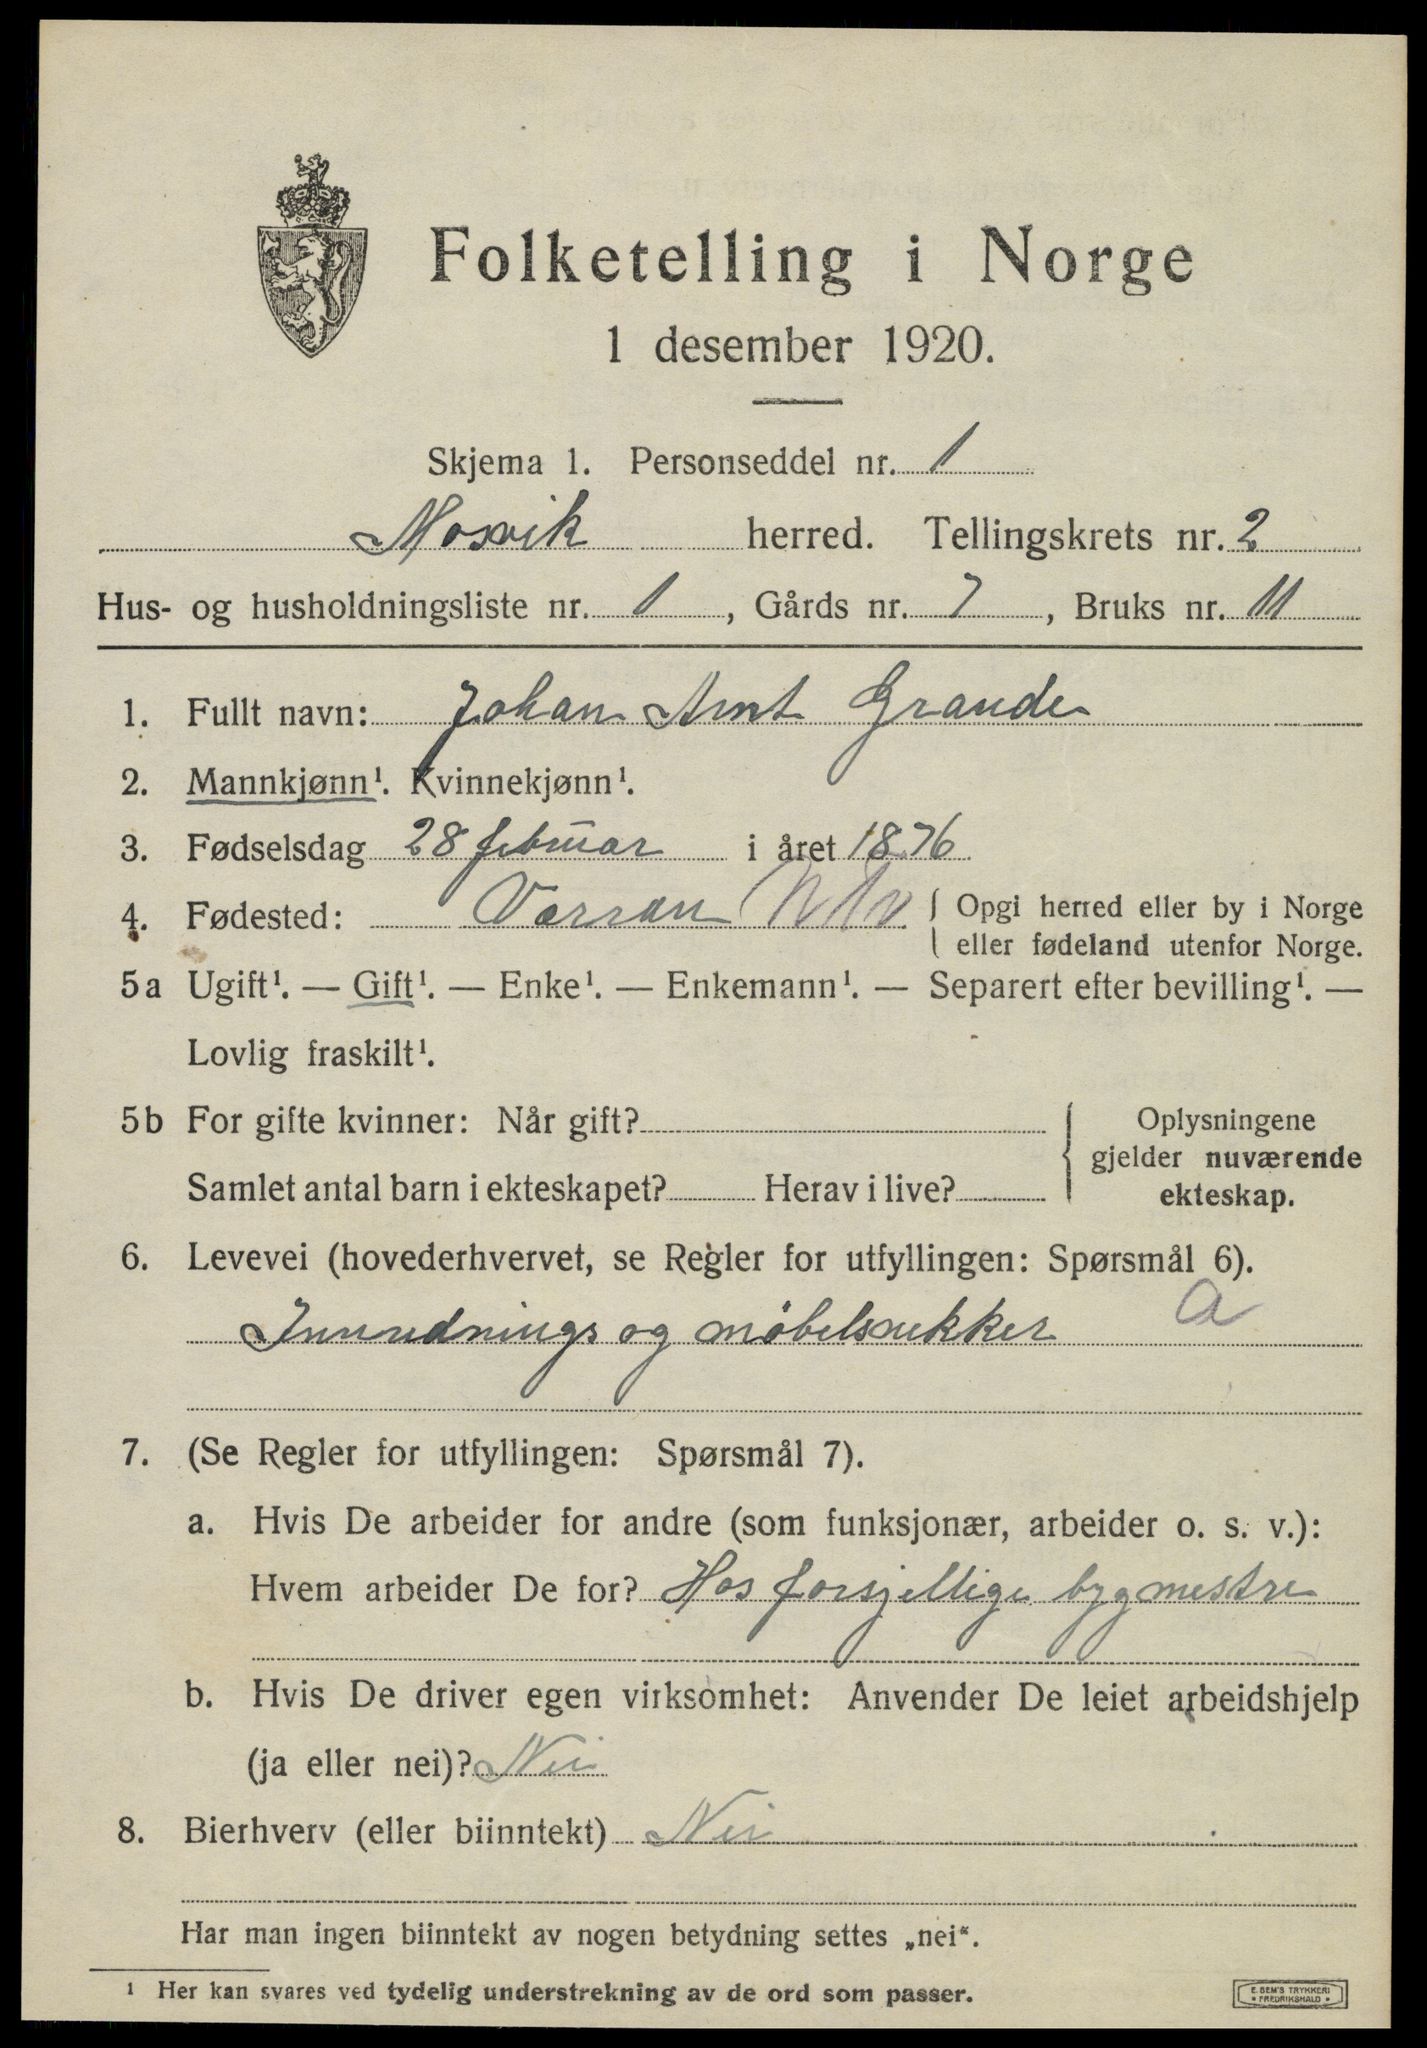 Folketelling i Norge
1 desember 1920.
Skjema 1. Personseddel nr. 1
Mosvik herred. Tellingskrets nr. 2
Hus- og husholdningsliste nr. 1, Gårds nr. 7, Bruks nr. 11
1. Fullt navn: Johan Arnt Grande
2. Mannkjønn¹. Kvinnekjønn¹.
3. Fødselsdag 28 februar i året 1876
4. Fødested: Verran { Opgi herred eller by i Norge
eller fødeland utenfor Norge.
5a Ugift¹. — Gift¹. — Enke¹. — Enkemann¹. — Separert efter bevilling¹. —
Lovlig fraskilt¹.
5b For gifte kvinner: Når gift? { Oplysningene
gjelder nuværende
Samlet antal barn i ekteskapet? Herav i live?
ekteskap.
6. Levevei (hovederhvervet, se Regler for utfyllingen: Spørsmål 6).
Innrednings og møbelsnekker a
7. (Se Regler for utfyllingen: Spørsmål 7).
a. Hvis De arbeider for andre (som funksjonær, arbeider o. s. v.):
Hvem arbeider De for? Hos forsjellige bygmestre
b. Hvis De driver egen virksomhet: Anvender De leiet arbeidshjelp
(ja eller nei)? Nei
8. Bierhverv (eller biinntekt) Nei
Har man ingen biinntekt av nogen betydning settes „nei“.
¹ Her kan svares ved tydelig understrekning av de ord som passer.
E. SEM'S TRYKKERI
• FREDRIKSHALD •